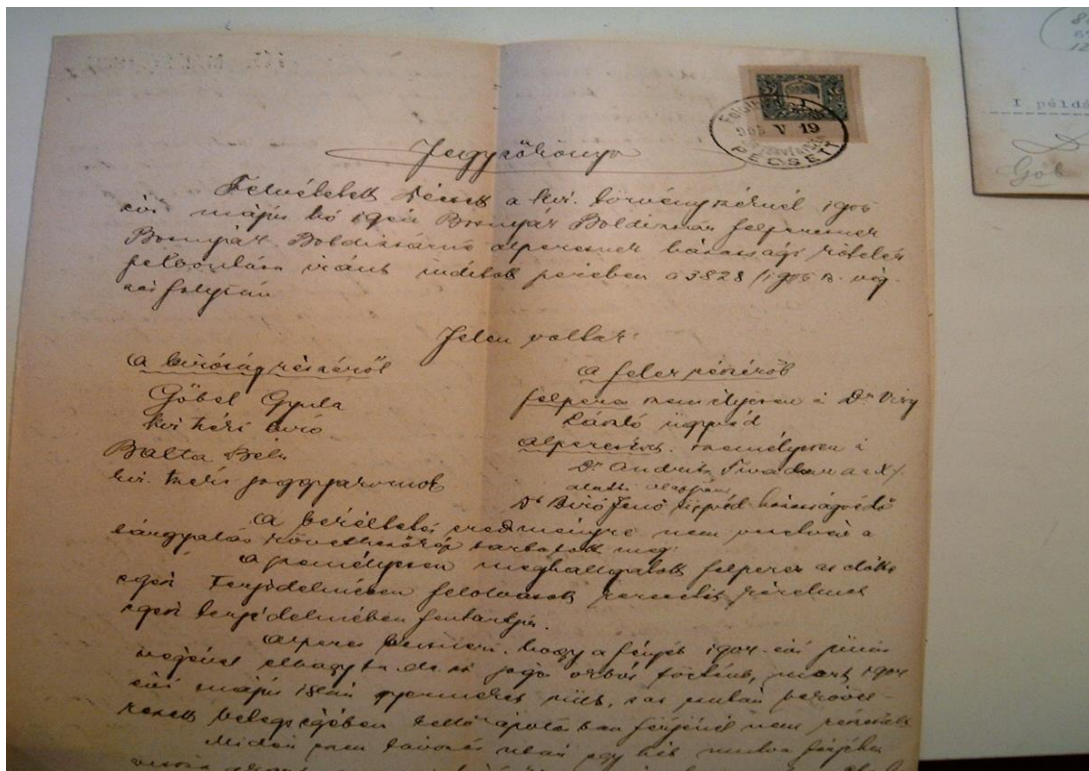 905 V 19
PECSÉTT
I példá
Göb
Jegyzőkönyv
Felvétetett Pécsett a kir. törvényszéknél 1905
évi május hó 19én Bosnyák Boldizsár felperesnek
Bosnyák Boldizsárné alperesnek házassági kötelék
felbontása iránt indított perében a 3828/1905 sz. vég-
zés folytán
Jelen voltak:
a biróság részéről
Göbel Gyula
kir. biró
Balta Béla
kir. joggyakornok
a felek részéről
felperes személyesen és Dr Visy
László ügyvéd
alperes személyesen és
Dr Andrits Tivadar a X/
alatti
Dr Biró Jenő ügyvéd házasságvédő
a békéltetés eredményre nem vezetvén a
tárgyalás következőkép tartatott meg:
a személyesen meghallgatott felperes az előtte
egész terjedelmében felolvasott kereseti kérelmét
egész terjedelmében fentartja.
alperes beismeri, hogy a férjét 1904. évi június
végével elhagyta, de ez jogos okból történt, mert 1904
évi május gyermeket szült, s az ezután
betegségében kellő ápolásban férjénél nem részesült
Midőn ezen távozás után egy hét mulva férjéhez
vissza